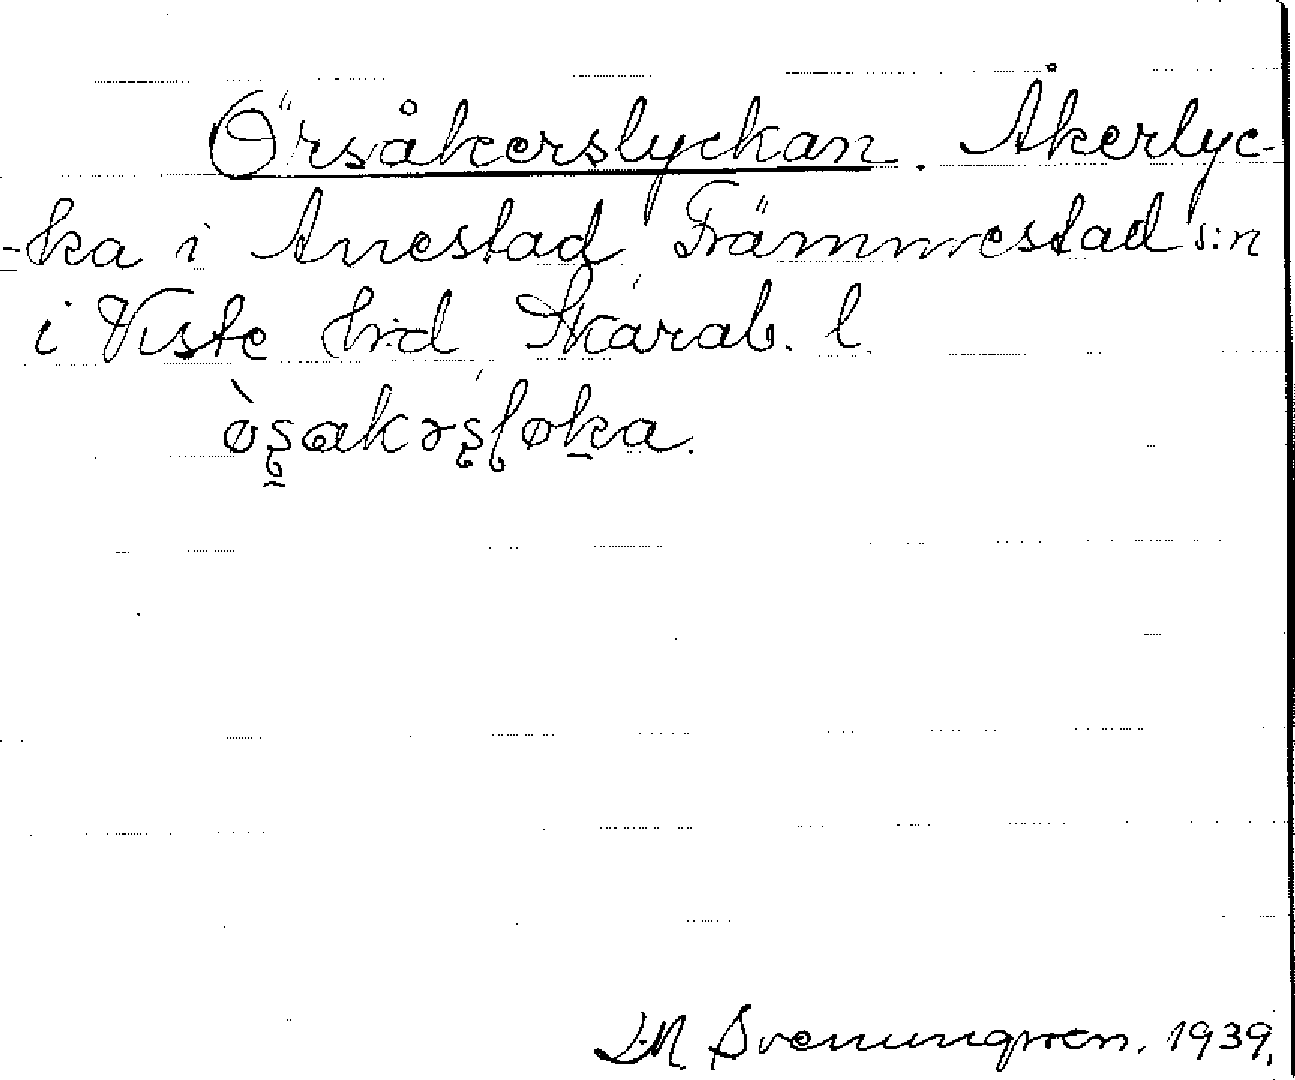 Örsåkerslyckan. Åkerlyc-
-ka i Anestad, Främmestad s:n
i Viste h:d Skarab. l
ö̀s̠akərsløka.
I.M Svenungsson. 1939.